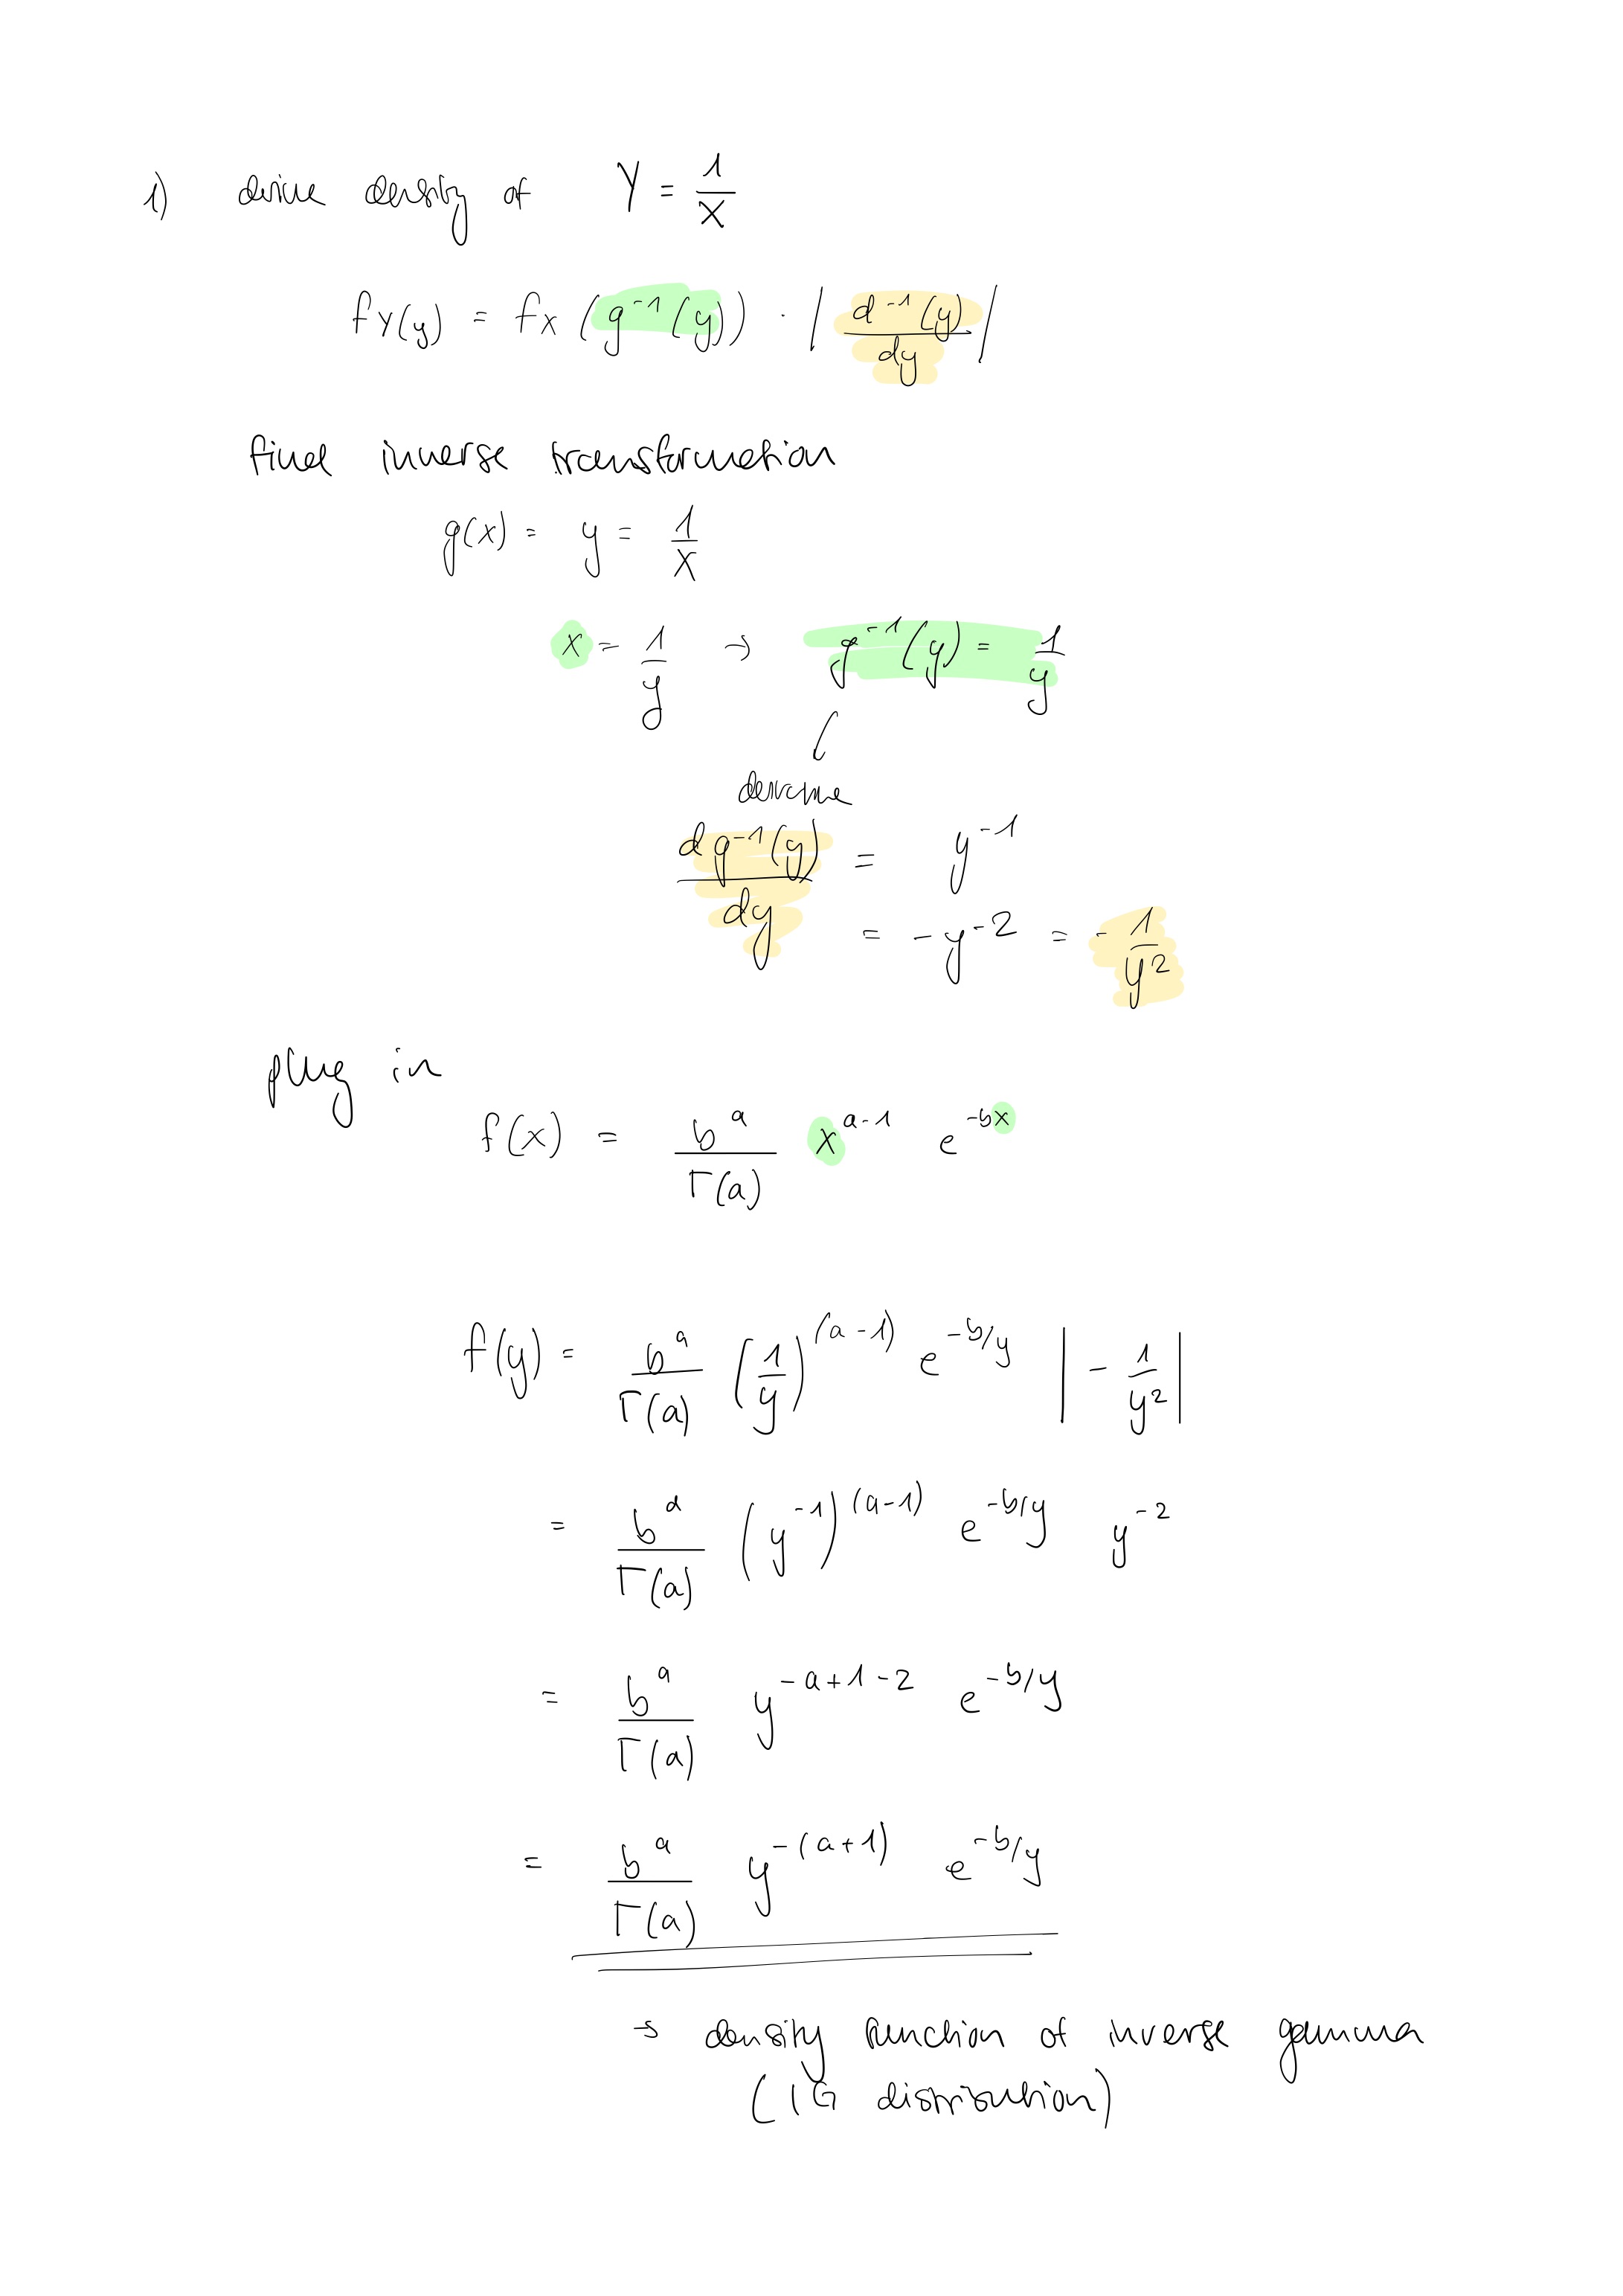 1) derive density of Y = 1/X
fY(y) = fX (g⁻¹(y)) · | d⁻¹(y)/dy |
find inverse transformation
g(x) = y = 1/x
x = 1/y → g⁻¹(y) = 1/y
derive
dg⁻¹(y)/dy = y⁻¹
= -y⁻² = -1/y²
plug in
f(x) = bᵃ/Γ(a) x^(a-1) e^(-bx)
f(y) = bᵃ/Γ(a) (1/y)^(a-1) e^(-b/y) | -1/y² |
= bᵃ/Γ(a) (y⁻¹)^(a-1) e^(-b/y) y⁻²
= bᵃ/Γ(a) y^(-a+1-2) e^(-b/y)
= bᵃ/Γ(a) y^(-(a+1)) e^(-b/y)
→ density function of inverse gamma
(IG distribution)